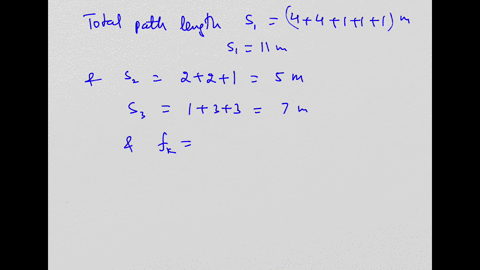 Total path length S₁ = (4+4+1+1+1) m
S₁ = 11 m
& S₂ = 2+2+1 = 5 m
S₃ = 1+3+3 = 7 m
& fₖ =